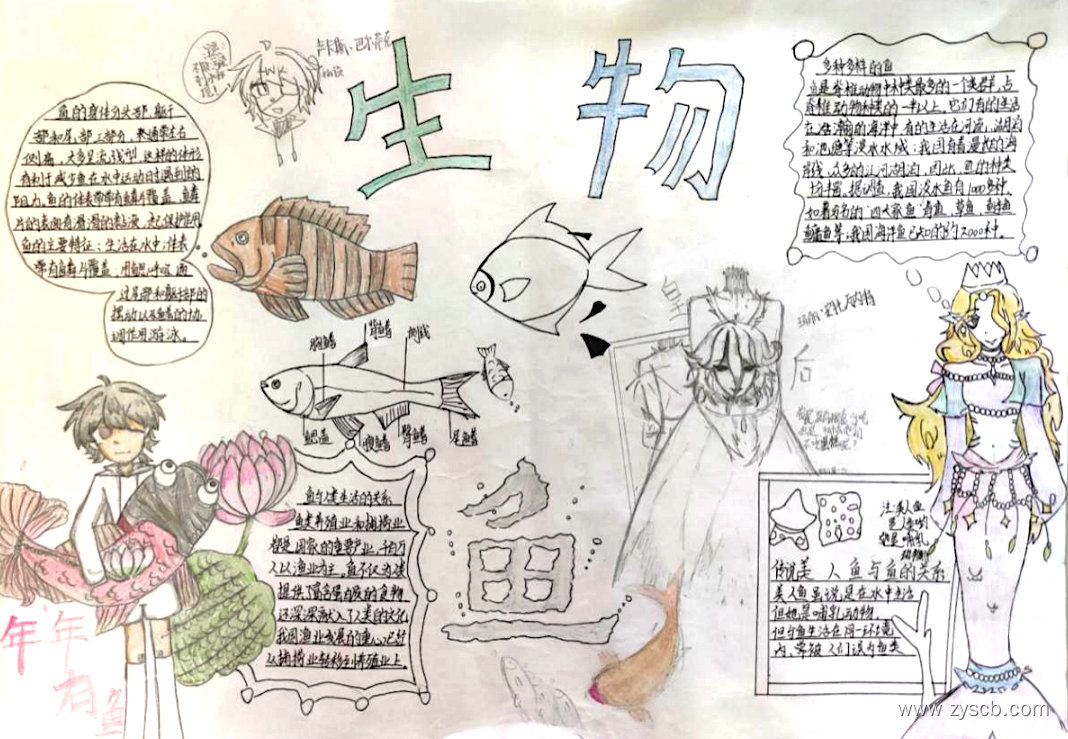 生物
鱼的身体分头部、躯干
部和尾部三部分，
侧扁，大多呈流线型，这样的体形
有利于减少鱼在水中运动时遇到的
阻力，鱼的体表常常有鳞片覆盖，鳞
片的表面有滑滑的黏液，起保护作用。
鱼的主要特征：生活在水中；体表
常有鳞片覆盖，用鳃呼吸
过尾部和躯干部的
摆动以及鳍的协
调作用游泳。
多种多样的鱼
鱼是脊椎动物中种类最多的一个类群，占
脊椎动物种类的一半以上。它们有的生活
在浩瀚的海洋中，有的生活在河流、湖泊
和池塘等淡水水域；我国有着漫长的海
岸线，众多的江河湖泊，因此，鱼的种类
十分丰富。据调查，我国淡水鱼有1000多种，
如著名的“四大家鱼”青鱼、草鱼、鲢鱼
鳙鱼等；我国海洋鱼已知的约2000种。
胸鳍
背鳍
侧线
鳃盖
腹鳍
臀鳍
尾鳍
皇
后
鱼与人类生活的关系
鱼类养殖业和捕捞业
都是国家的重要产业，千百万
人以渔业为主。鱼不仅为人类
提供了富含蛋白质的食物，
还深深融入了人类的文化
我国渔业发展的重心已经
从捕捞业转移到养殖业上。
鱼
注：美人鱼
是
都是哺乳
动物
传说美人鱼与鱼的关系
美人鱼虽说是在水中生活
但她是哺乳动物
但与鱼生活在同一环境
内，常被人们误为鱼类
年年
有鱼
www.zyscb.com